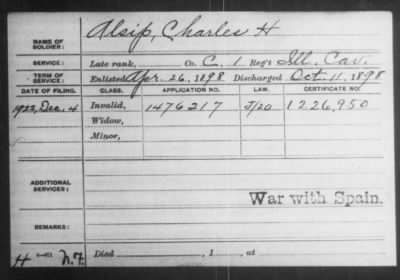 NAME OF SOLDIER: Alsip, Charles H
SERVICE: Late rank, Co. C, 1 Reg't Ill. Cav.
TERM OF SERVICE: Enlisted Apr. 26, 1898 Discharged Oct. 11, 1898
DATE OF FILING. CLASS. APPLICATION NO. LAW. CERTIFICATE NO.
1922, Dec. 4 Invalid, 1476217 J/20 1226,950
Widow,
Minor,
ADDITIONAL SERVICES:
War with Spain.
REMARKS:
H N.F. Died , 1 , at